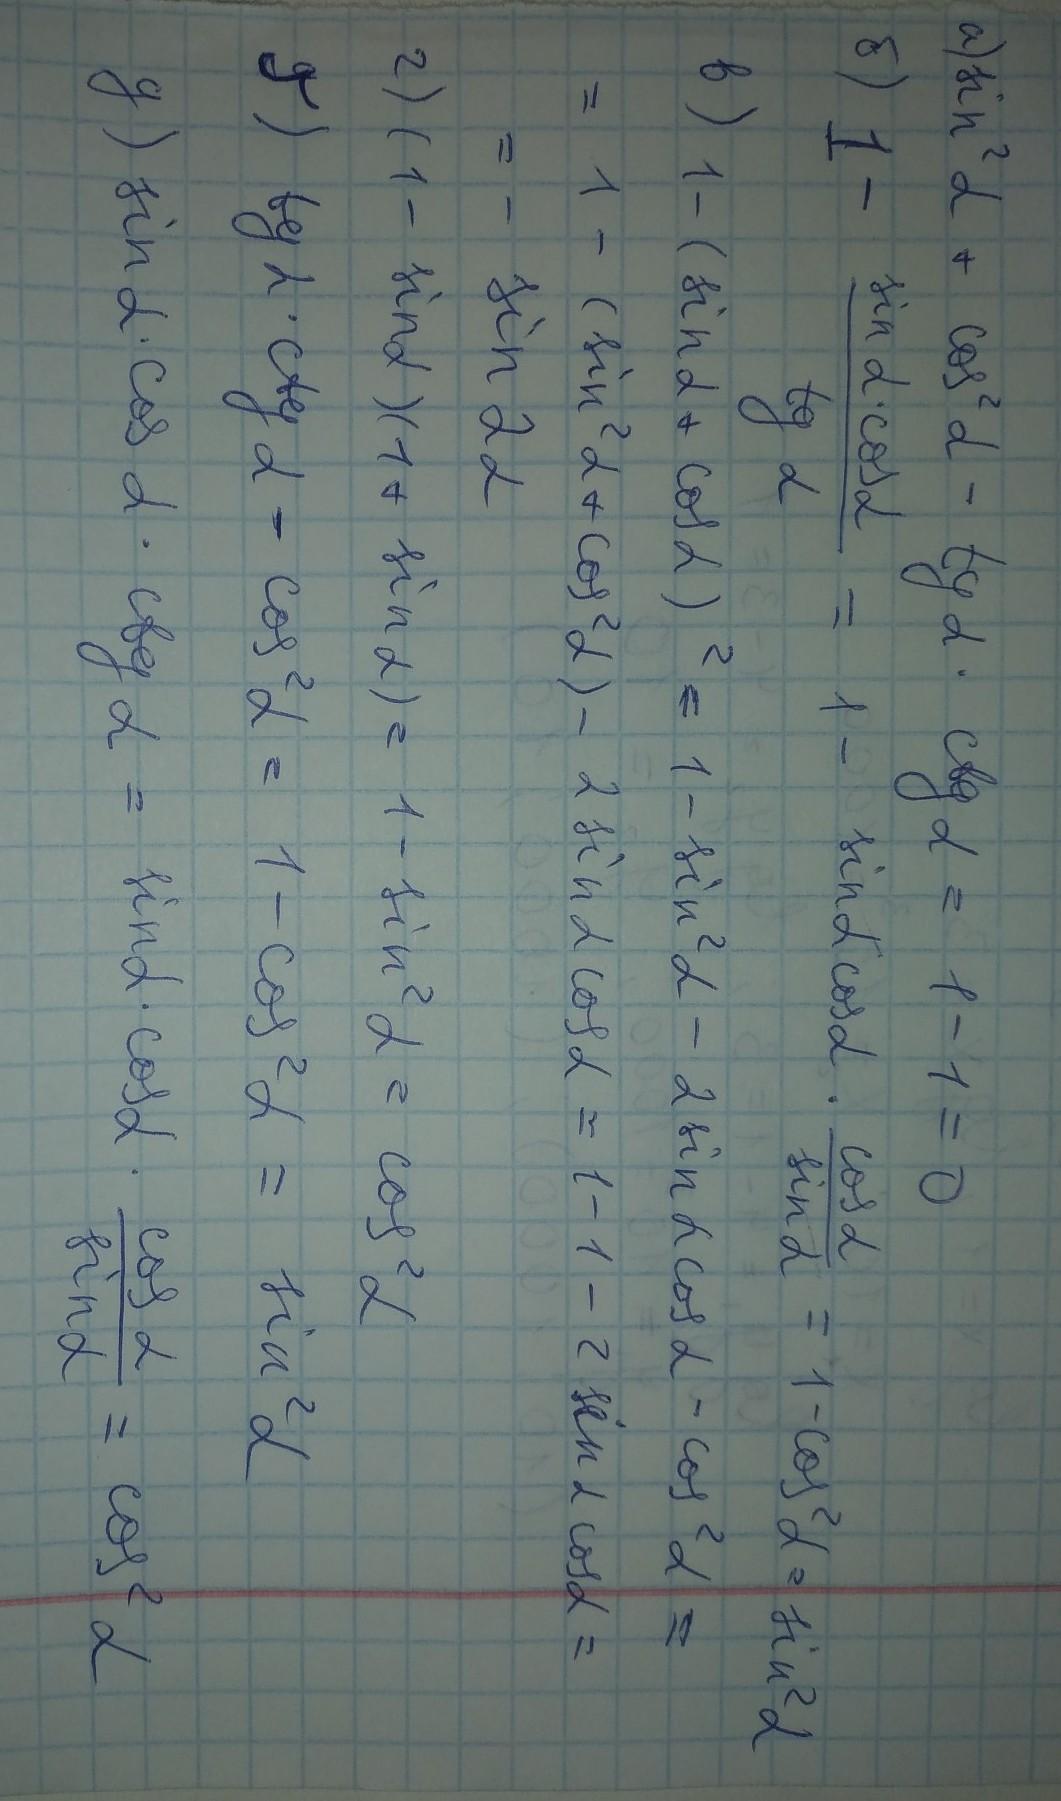 а) sin²α + cos²α - tgα · ctgα = 1 - 1 = 0
б) 1 - sinα·cosα / tgα = 1 - sinα cosα · cosα / sinα = 1 - cos²α = sin²α
в) 1 - (sinα + cosα)² = 1 - sin²α - 2 sinα cosα - cos²α =
= 1 - (sin²α + cos²α) - 2 sinα cosα = 1 - 1 - 2 sinα cosα =
= - sin2α
г) (1 - sinα)(1 + sinα) = 1 - sin²α = cos²α
д) tgα · ctgα - cos²α = 1 - cos²α = sin²α
д) sinα · cosα · ctgα = sinα · cosα · cosα / sinα = cos²α